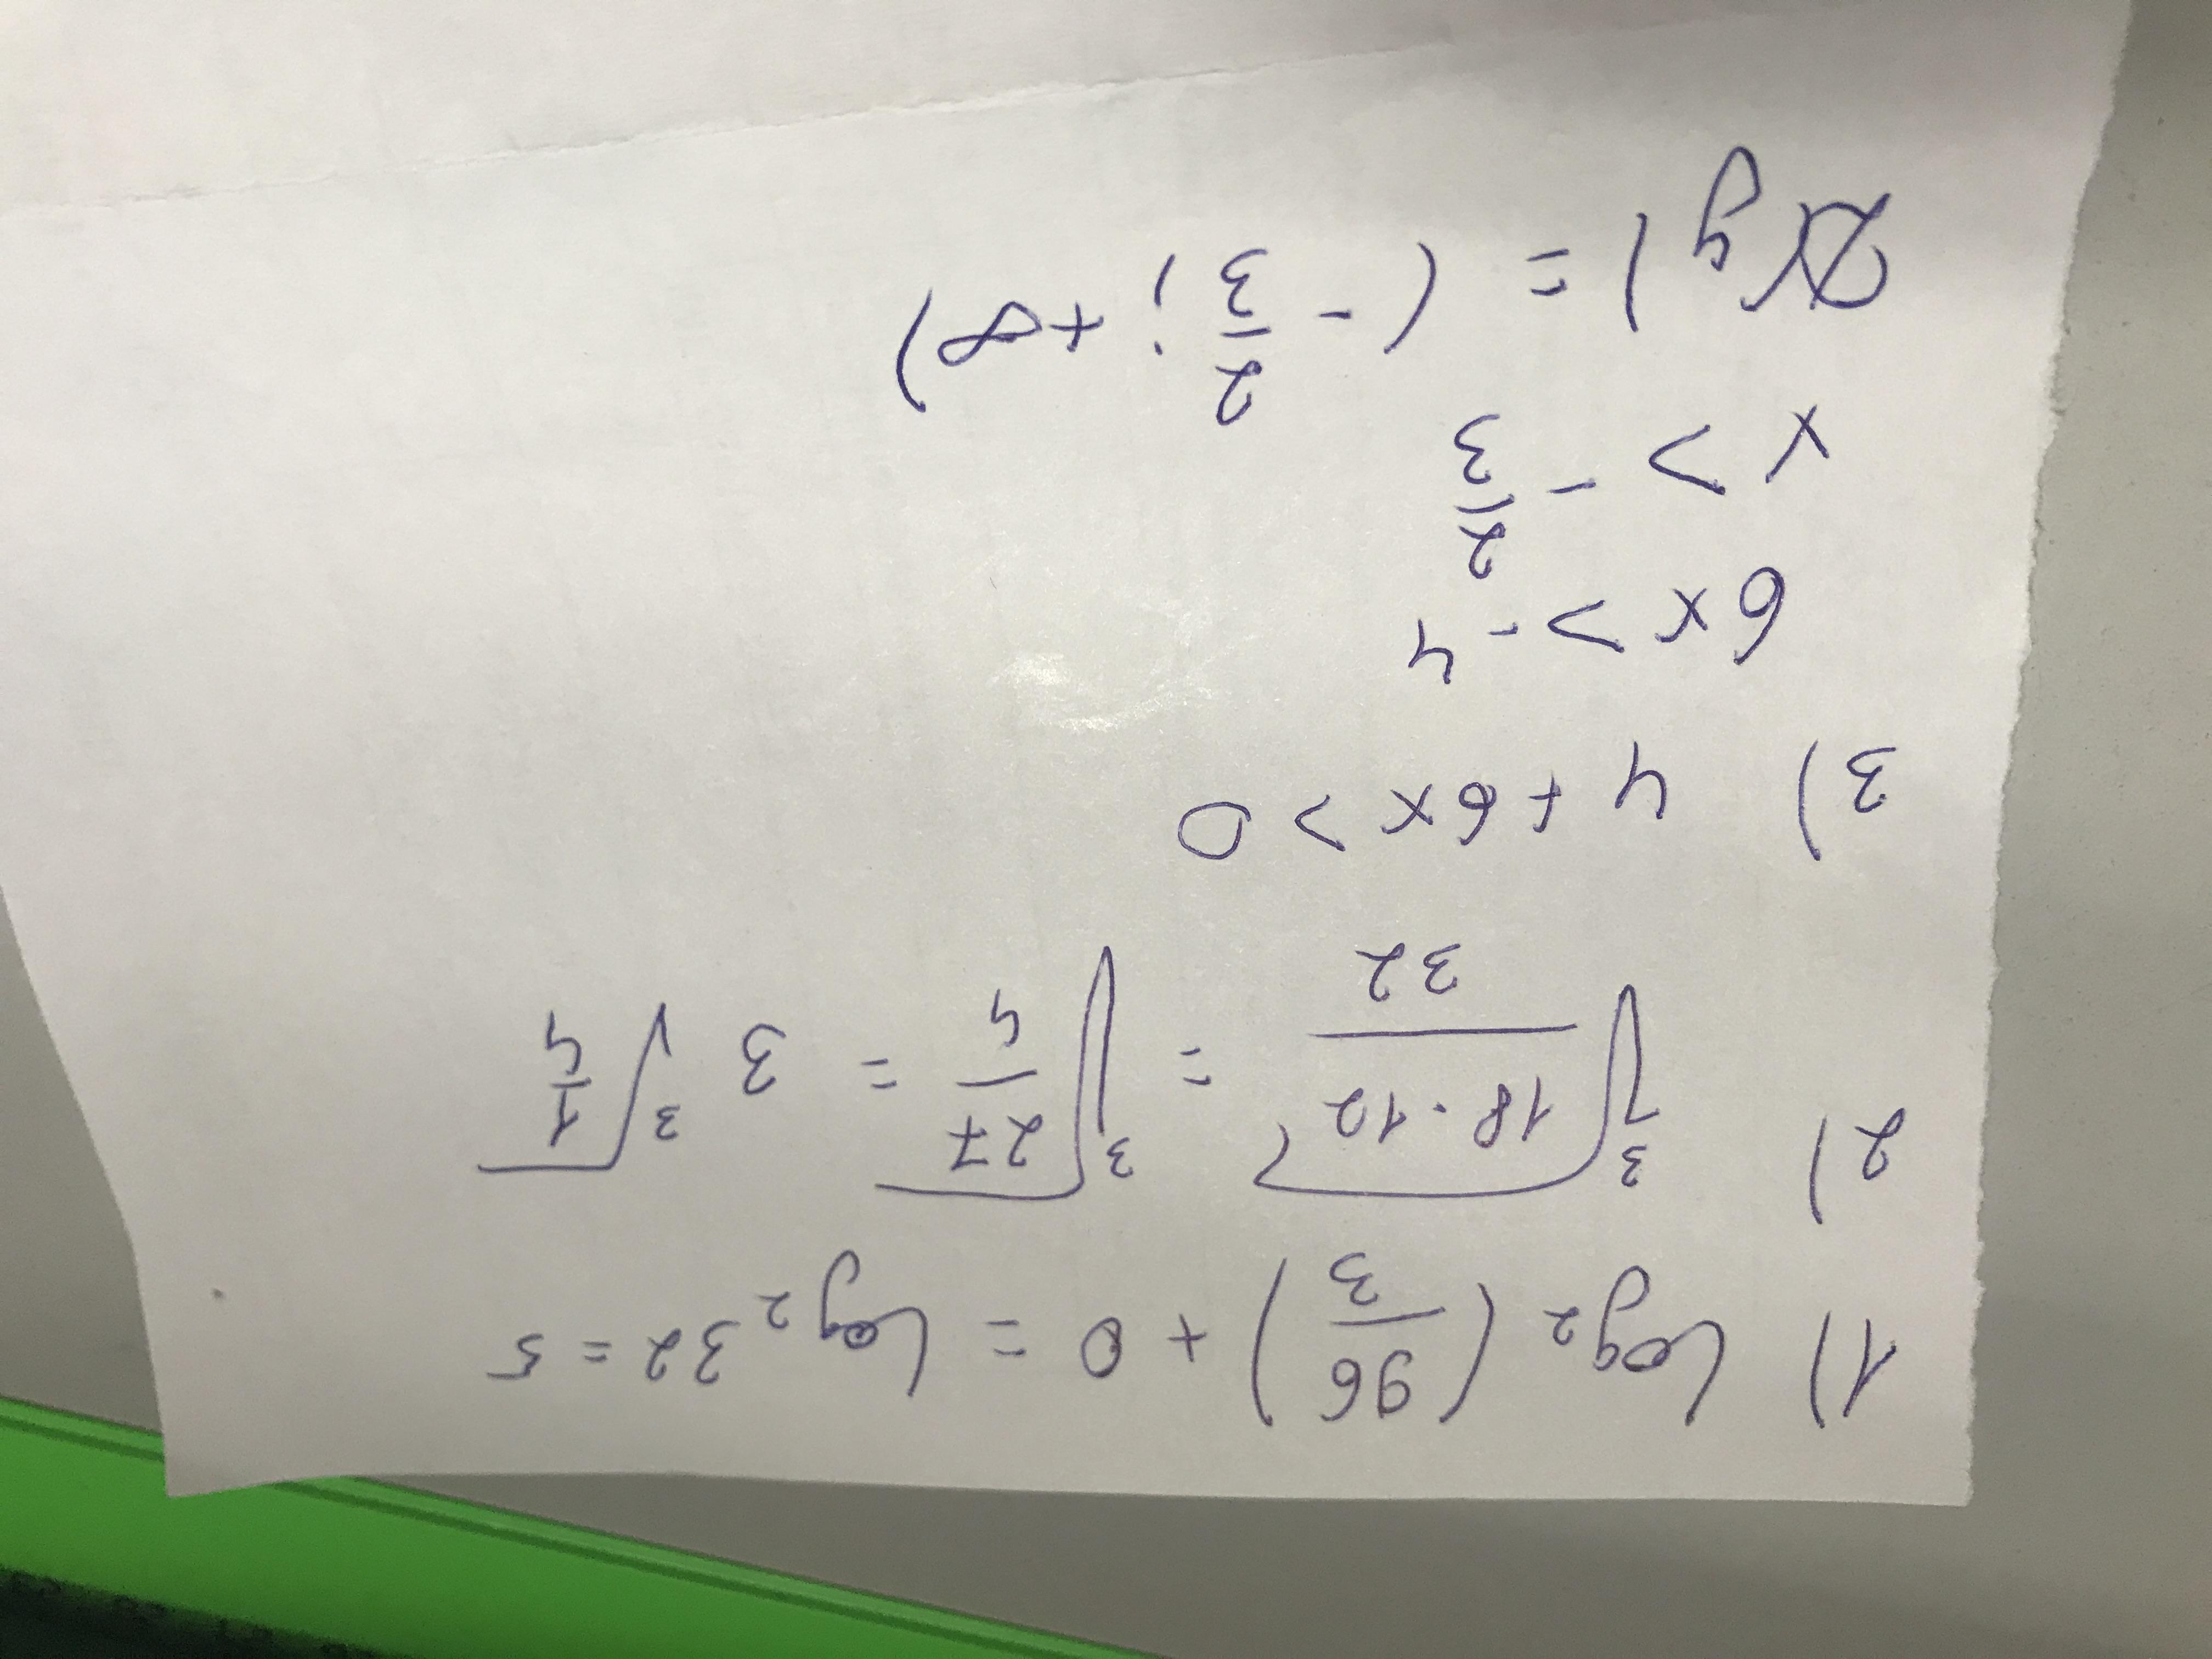 1) log₂ (96/3) + 0 = log₂ 32 = 5
2) ∛(18·12/32) = ∛(27/4) = 3 ∛(1/4)
3) 4 + 6x > 0
6x > -4
x > -2/3
D(y) = (-2/3; +∞)